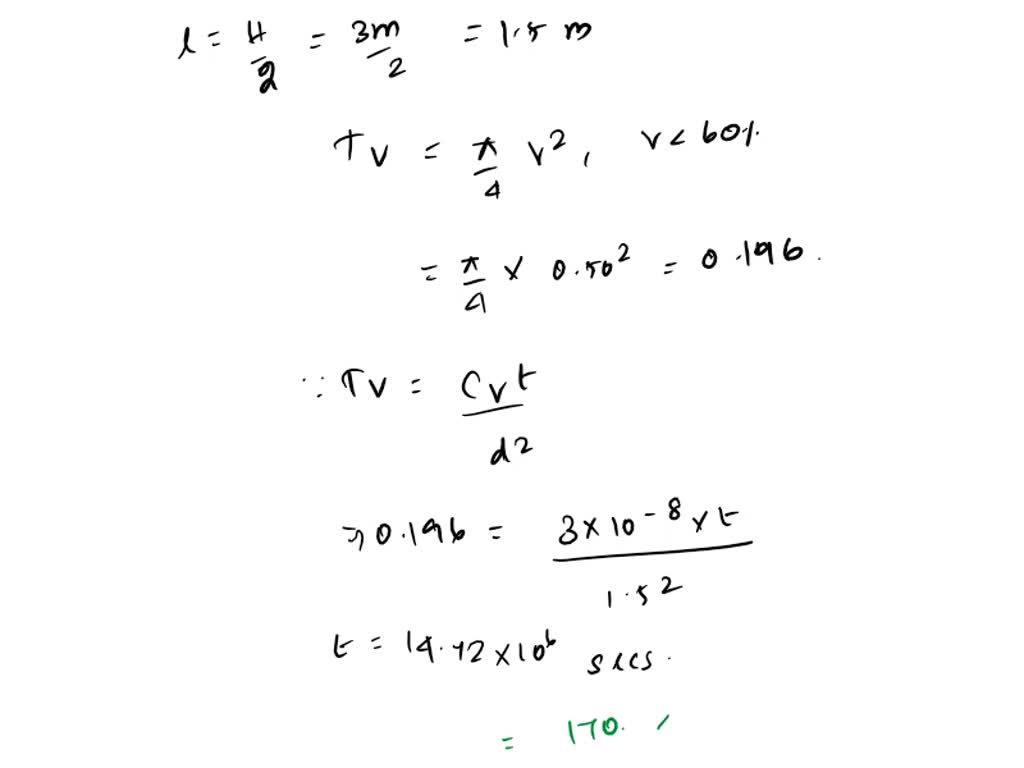 l = H/2 = 3m/2 = 1.5 m
Tv = π/4 v², v < 60%
= π/4 × 0.50² = 0.196.
∵ Tv = Cvt/d²
⇒ 0.196 = 3×10⁻⁸×t/1.5²
t = 14.72×10⁶ secs.
= 170.